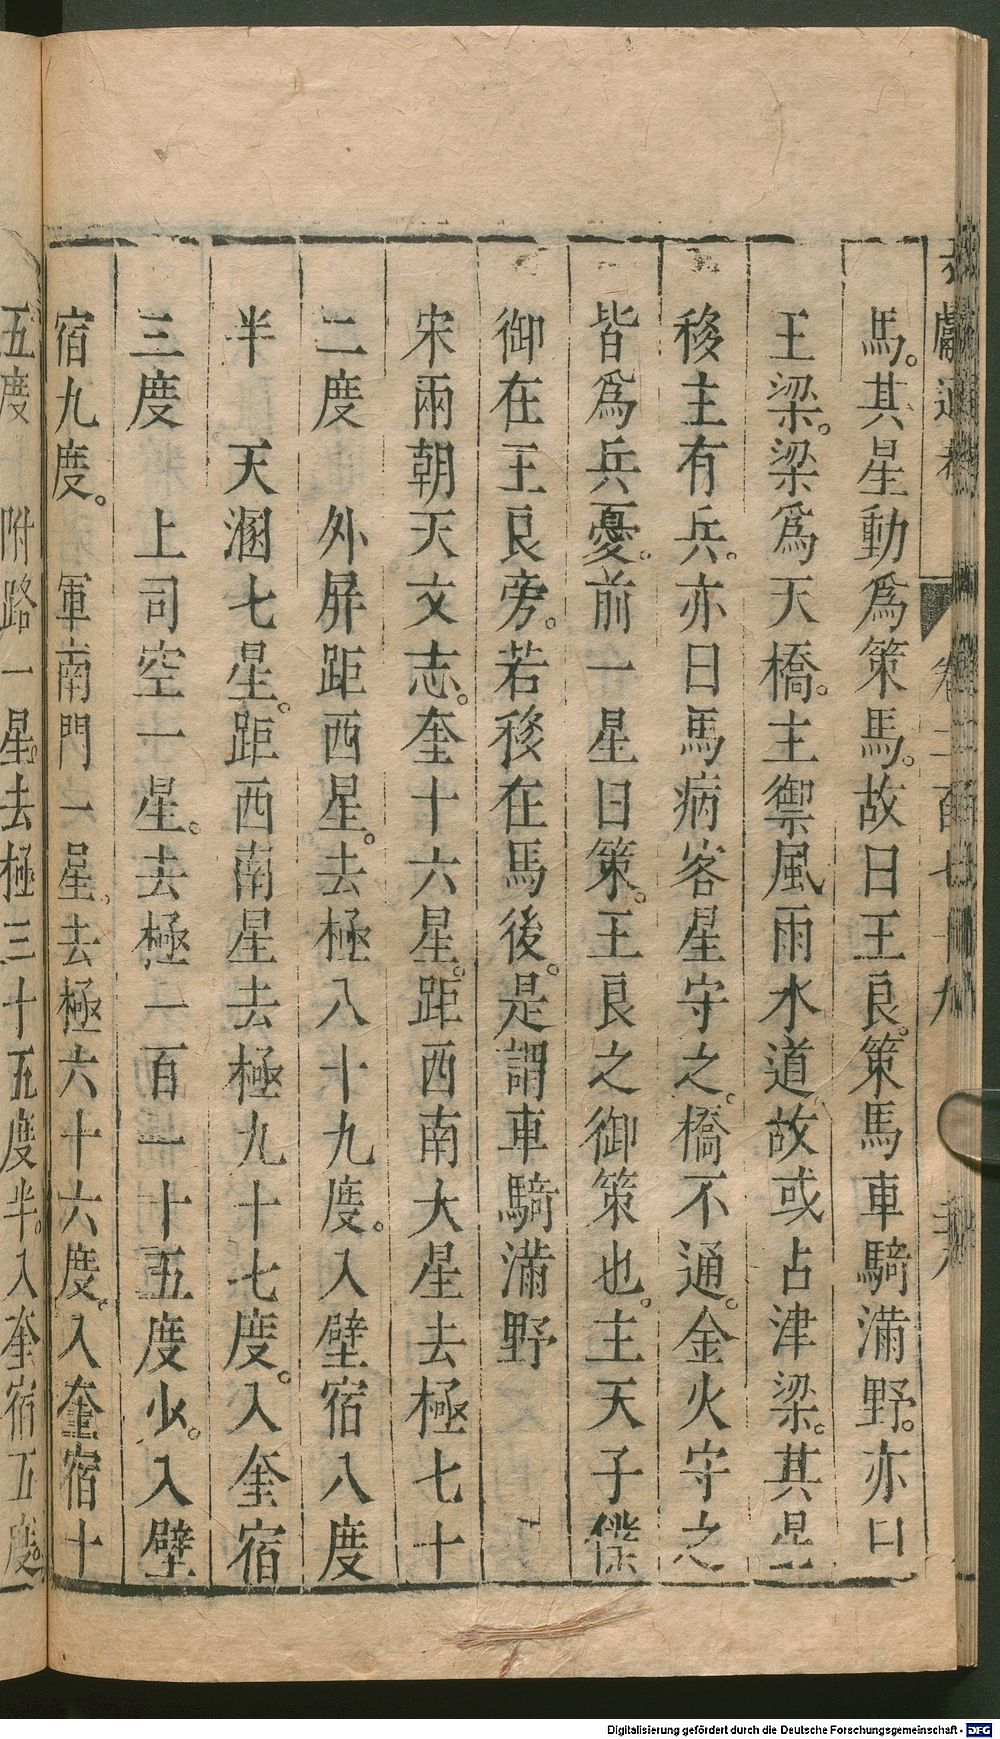 馬。其星動為策馬。故曰王良。策馬車騎滿野。亦曰
王梁。梁為天橋。主禦風雨水道。故或占津梁。其星
移主有兵。亦曰馬病客星守之。橋不通。金火守之
皆為兵憂。前一星曰策。王良之御策也。主天子僕
御在王良旁。若移在馬後。是謂車騎滿野
宋兩朝天文志。奎十六星。距西南大星去極七十
二度 外屏距西星。去極八十九度。入壁宿八度
半 天溷七星。距西南星去極九十七度。入奎宿
三度 上司空一星。去極一百一十五度少。入壁
宿九度。 軍南門一星。去極六十六度。入奎宿十
五度 附路一星。去極三十五度半。入奎宿五度
獻通考 卷二百七十九
Digitalisierung gefördert durch die Deutsche Forschungsgemeinschaft - DFG